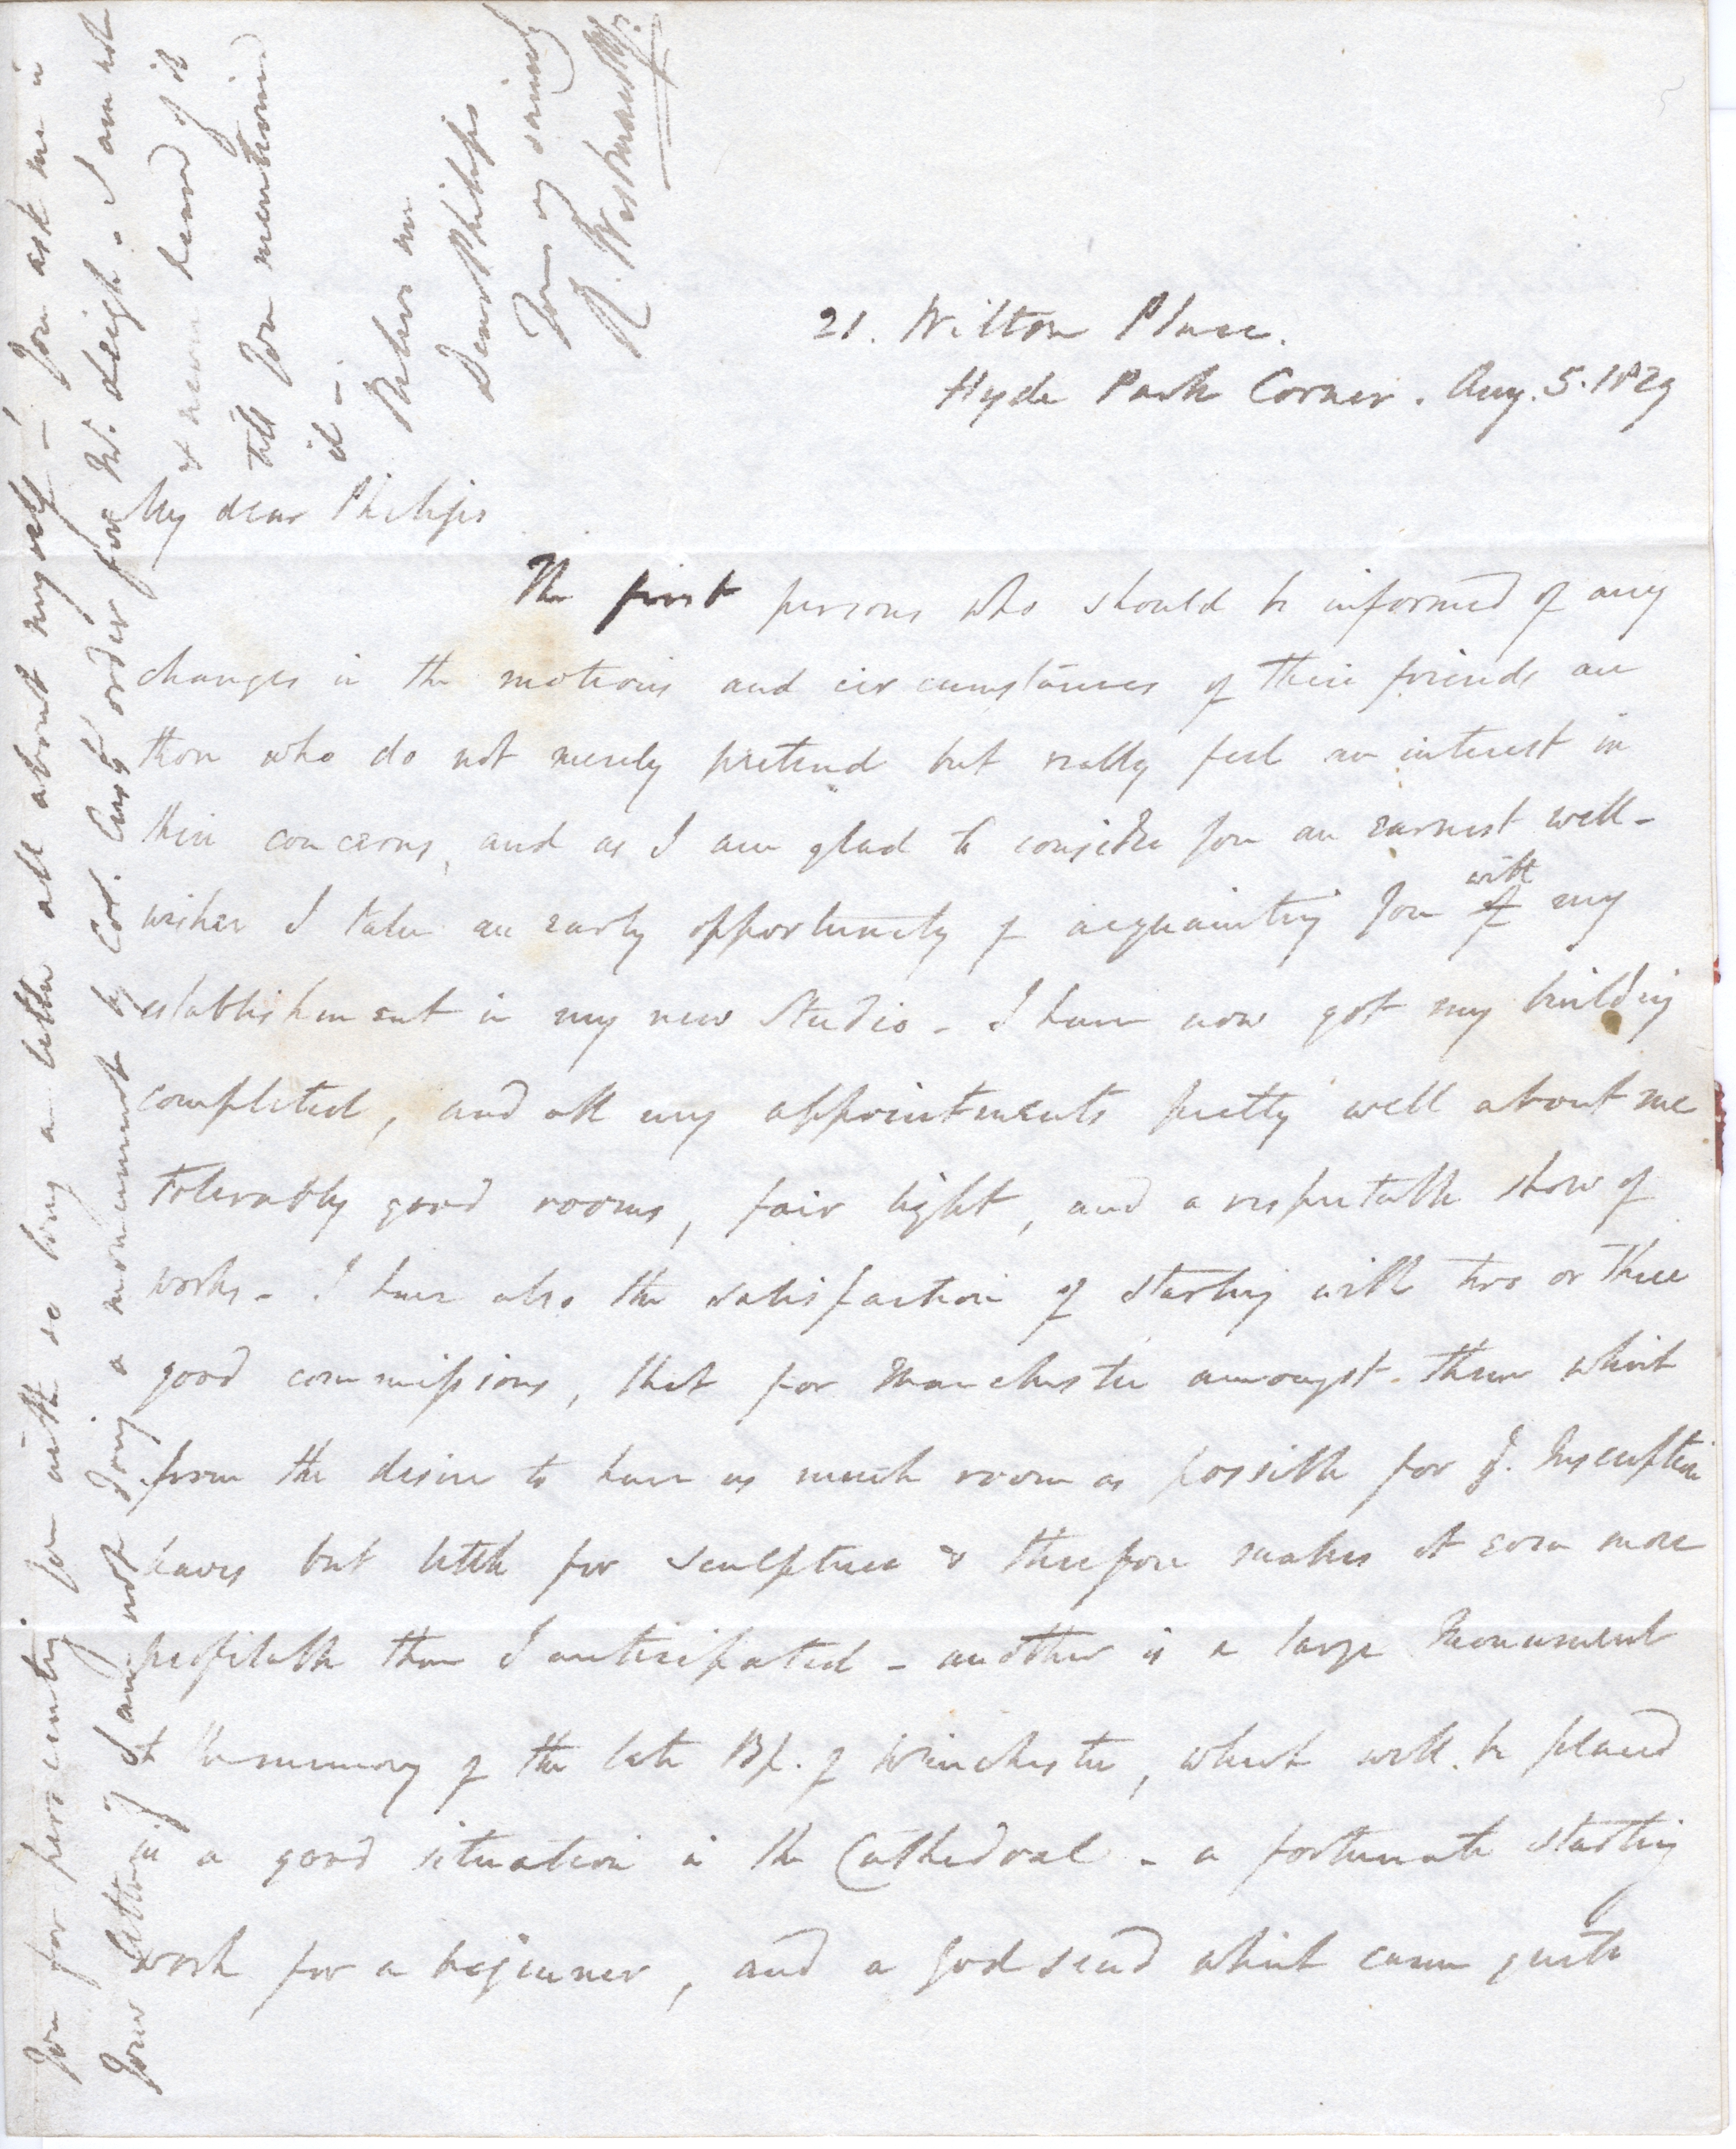 21. Wilton Place.
Hyde Park Corner. Aug. 5. 1829
My dear Philips
The first persons who should be informed of any
changes in the motions and circumstances of their friends are
those who do not merely pretend but really feel an interest in
their concerns, and as I am glad to consider you an earnest well-
wisher I take an early opportunity of acquainting you of with my
establishment in my new Studio - I have now got my building
completed, and all my appointments pretty well about me
tolerably good rooms, fair light, and a respectable show of
works - I have also the satisfaction of starting with two or three
good commissions, that for Manchester amongst them which
from the desire to have as much room as possible for Inscription
leaves but little for sculpture & therefore makes it even more
profitable than I anticipated - another is a large Monument
to the memory of the late Bp. of Winchester, which will be placed
in a good situation in the Cathedral - a fortunate starting
work for a beginner, and a god send which came quite
You for persecuting you with so long a letter all about myself - You ask me in
your letter if I am not doing a monument by Col. order for Mr. Leigh - I am not
& never heard of it
till you mentioned
it -
Believe me
Dear Philips
Yours very sincerely
R. Westmacott Jr.